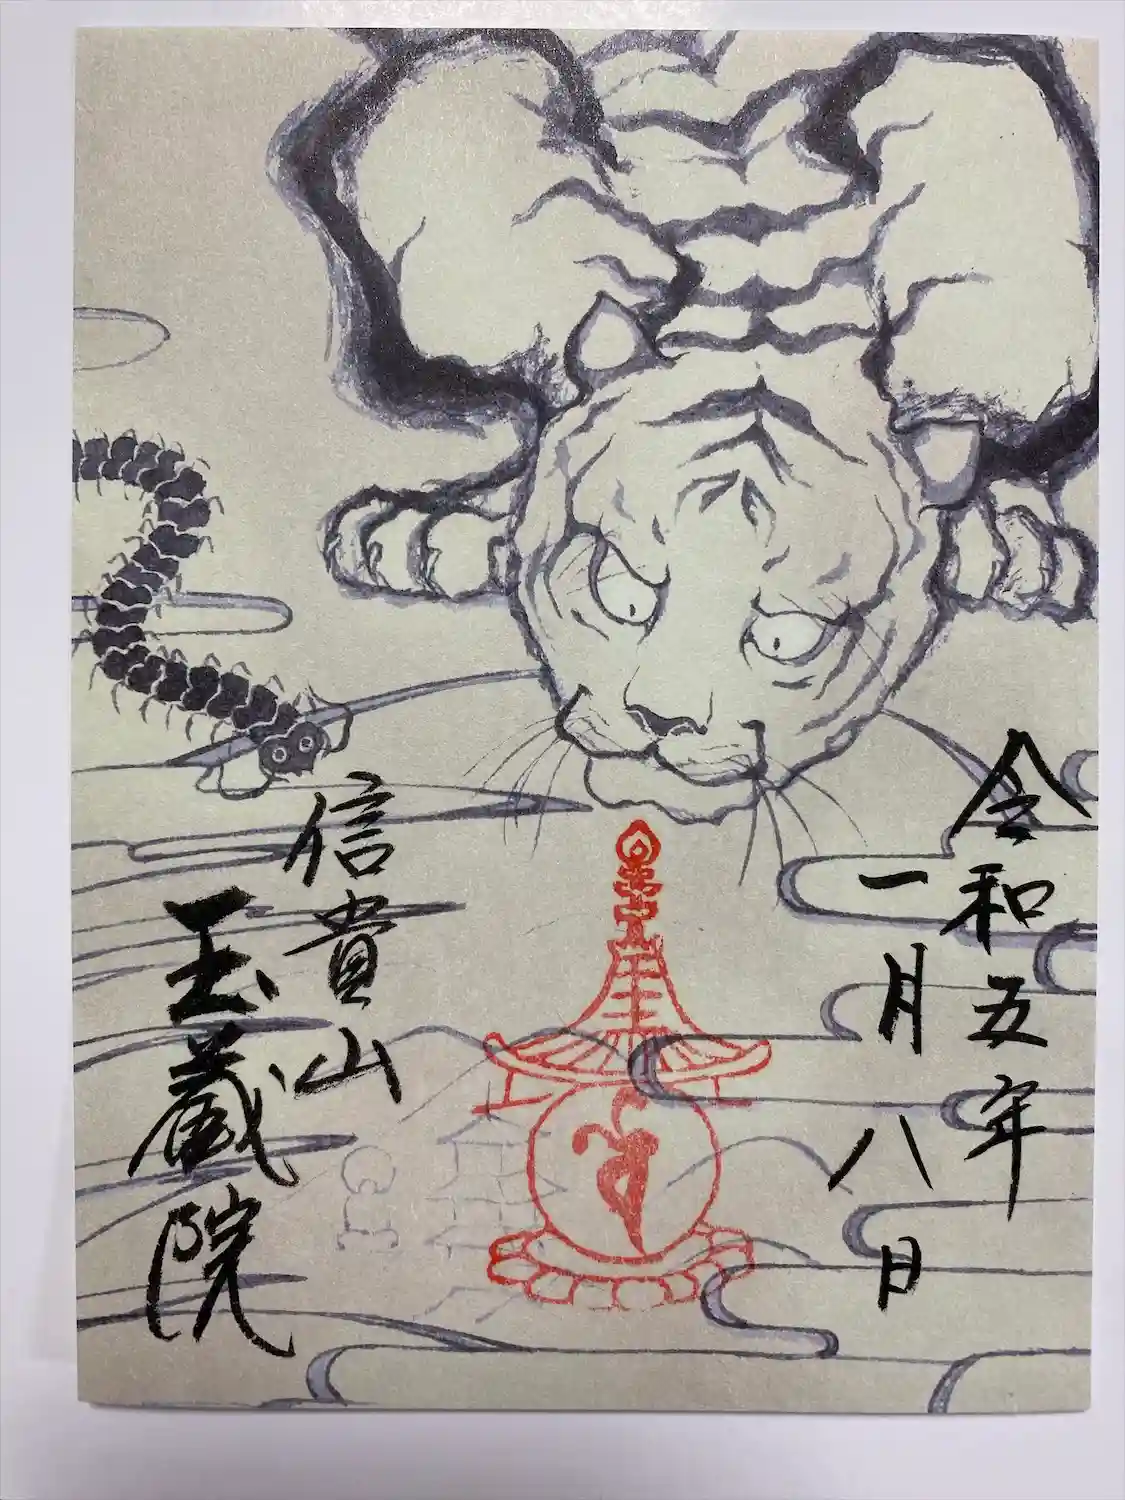 令和五年
一月八日
信貴山
玉蔵院